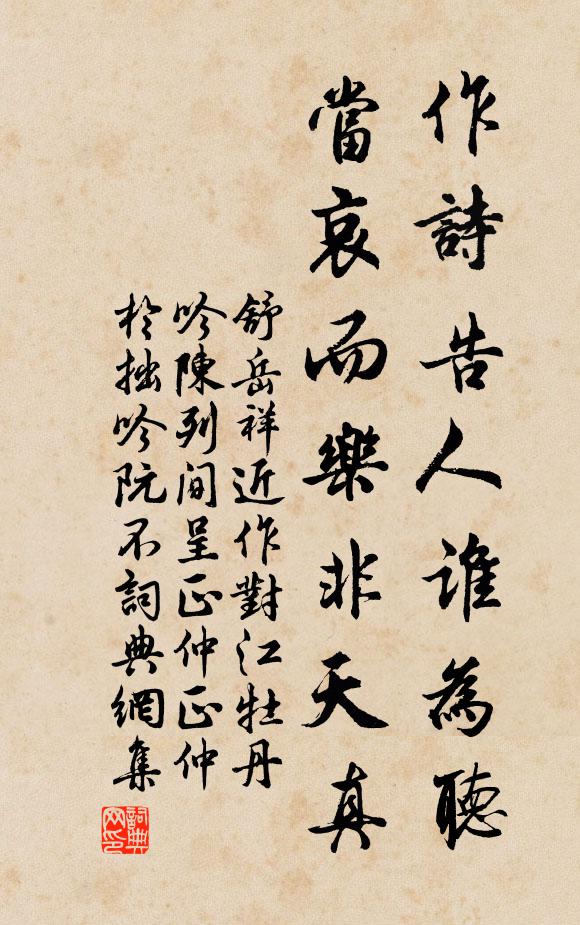 作詩告人誰為聽
當哀而樂非天真
舒岳祥近作對江牡丹
吟陳列間呈正仲正仲
於拙吟阮不詞典網集
詞典網印